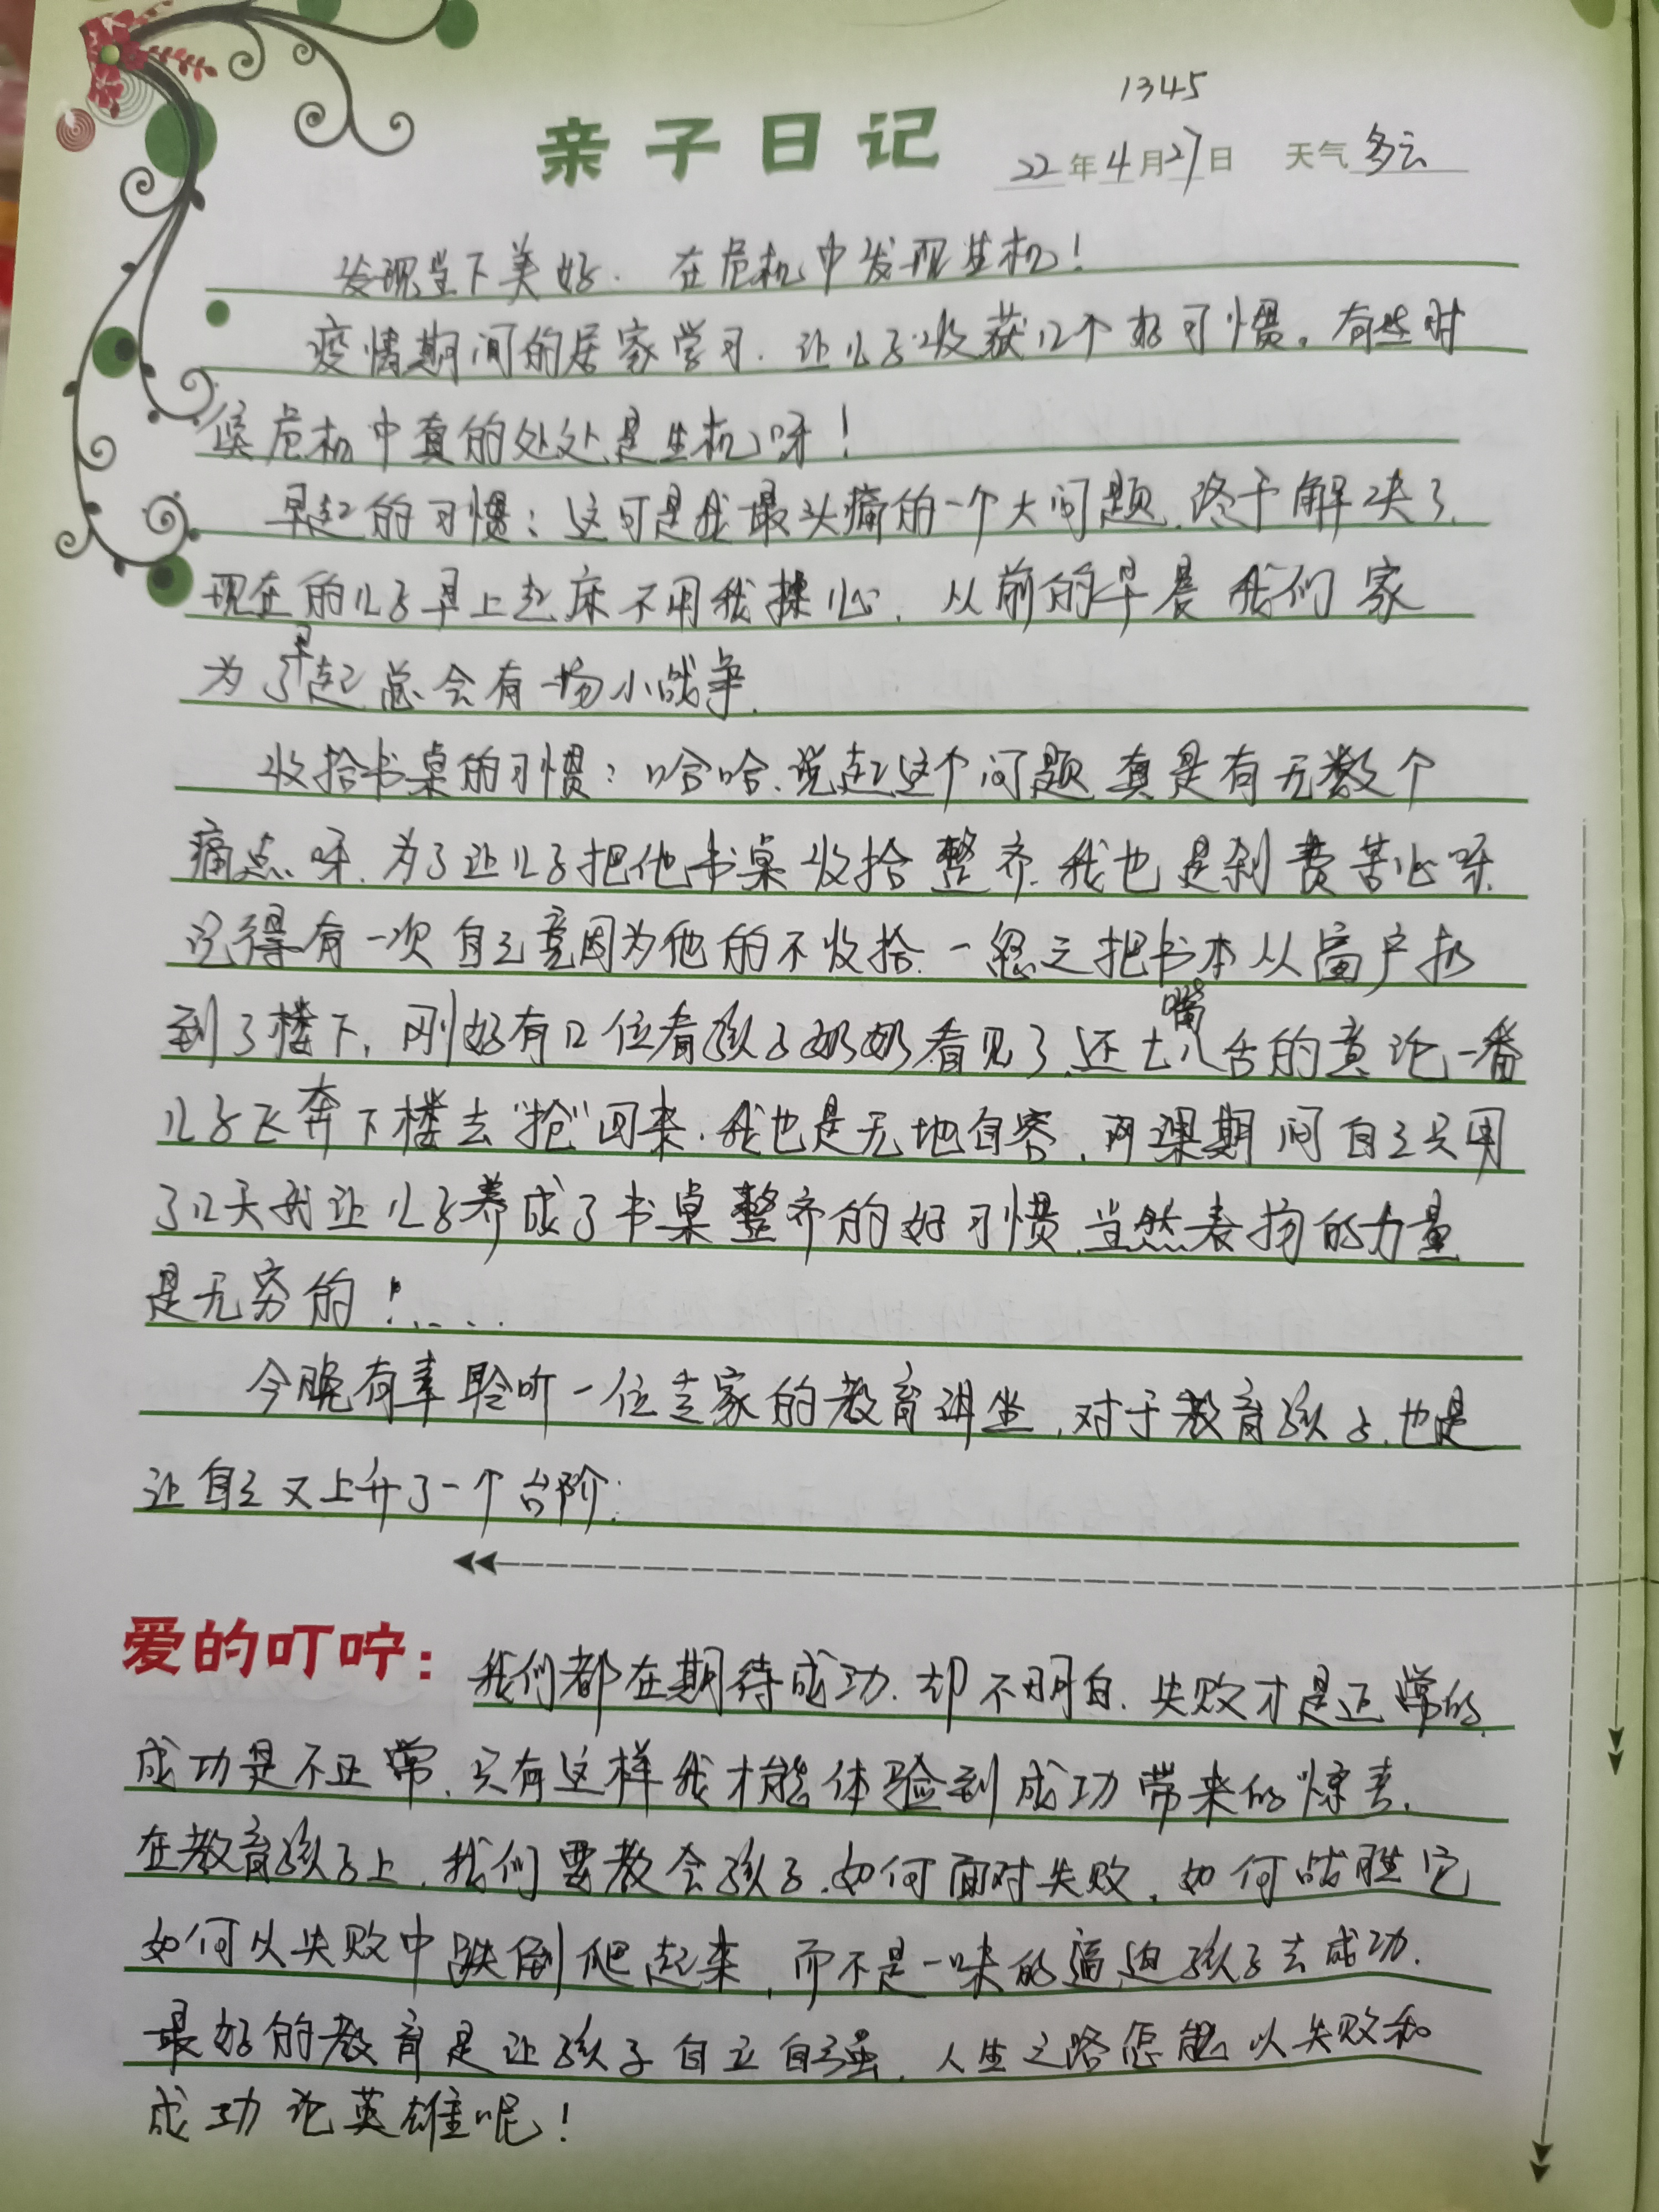 1345
亲子日记
22年4月27日 天气多云
发现当下美好. 在危机中发现生机!
疫情期间的居家学习. 让儿子收获几个好习惯。有些时
候危机中真的处处是生机呀!
早起的习惯:这可是我最头痛的一个大问题.终于解决了.
现在的儿子早上起床不用我操心. 从前的早晨我们家
为了早起总会有一场小战争.
收拾书桌的习惯:哈哈.说起这个问题真是有无数个
痛点呀.为了让儿子把他书桌收拾整齐.我也是刹费苦心呀.
记得有一次自己竟因为他的不收拾.一怒之把书本从窗户扔
到了楼下. 刚好有几位看孩子奶奶看见了.还七嘴八舌的意论一番
儿子飞奔下楼去“抢”回来.我也是无地自容.网课期间自己只用
了几天我让儿子养成了书桌整齐的好习惯.当然表扬的力量
是无穷的!.....
今晚有幸聆听一位专家的教育讲坐.对于教育孩子.也是
让自己又上升了一个台阶.
爱的叮咛: 我们都在期待成功.却不明白.失败才是正常的.
成功是不正常.只有这样我才能体验到成功带来的惊喜.
在教育孩子上.我们要教会孩子.如何面对失败.如何战胜它
如何从失败中跌倒爬起来,而不是一味的逼迫孩子去成功.
最好的教育是让孩子自立自强.人生之路怎能以失败和
成功论英雄呢!